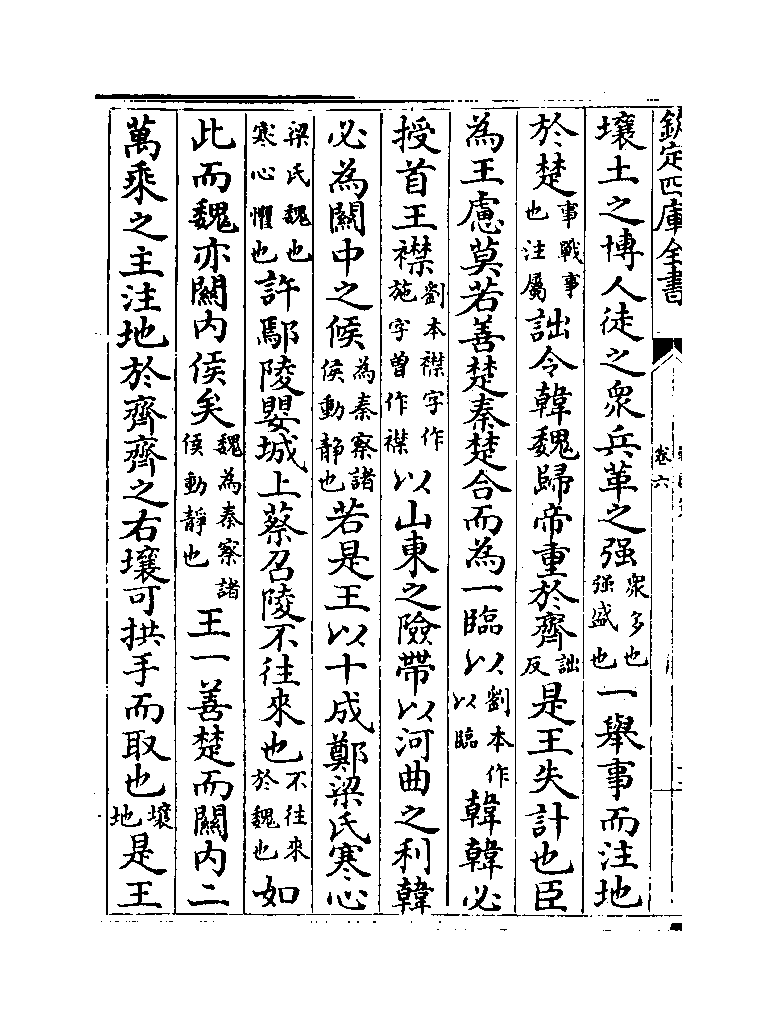 欽定四庫全書
卷六
壤土之博人徒之衆兵革之强衆多也强盛也一舉事而注地
於楚事戰事也注屬詘令韓魏歸帝重於齊詘反是王失計也臣
為王慮莫若善楚秦楚合而為一臨以劉本作以臨韓韓必
授首王襟劉本襟字作施字曽作襟以山東之險帶以河曲之利韓
必為關中之候為秦察諸侯動静也若是王以十成鄭梁氏寒心
梁氏魏也寒心懼也許鄢陵嬰城上蔡召陵不往來也不往來於魏也如
此而魏亦關内侯矣魏為秦察諸侯動静也王一善楚而關内二
萬乘之主注地於齊齊之右壤可拱手而取也壤地是王